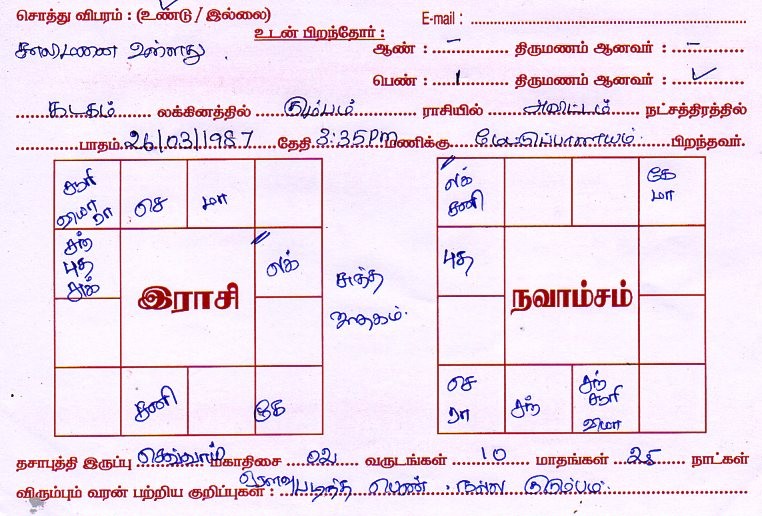 சொத்து விபரம் : (உண்டு / இல்லை)
E-mail :
உடன் பிறந்தோர் :
காலிமனை உள்ளது
ஆண் : – திருமணம் ஆனவர் : –
பெண் : 1 திருமணம் ஆனவர் : ✓
கடகம் லக்கினத்தில் கும்பம் ராசியில் அவிட்டம் நட்சத்திரத்தில்
பாதம் 26/03/1987 தேதி 3:35Pm மணிக்கு மேட்டுப்பாளையம் பிறந்தவர்.
சூரி
வியா
ரா
செ
மா
சந்
புத
சுக்
லக்
இராசி
சனி
கே
சுத்த
ஜாதகம்.
லக்
சனி
கே
மா
புத
நவாம்சம்
செ
ரா
சுக்
சந்
சூரி
வியா
தசாபுத்தி இருப்பு செவ்வாய் மகாதிசை 02 வருடங்கள் 10 மாதங்கள் 25 நாட்கள்
விரும்பும் வரன் பற்றிய குறிப்புகள் : படித்த பெண். நல்ல குடும்பம்.